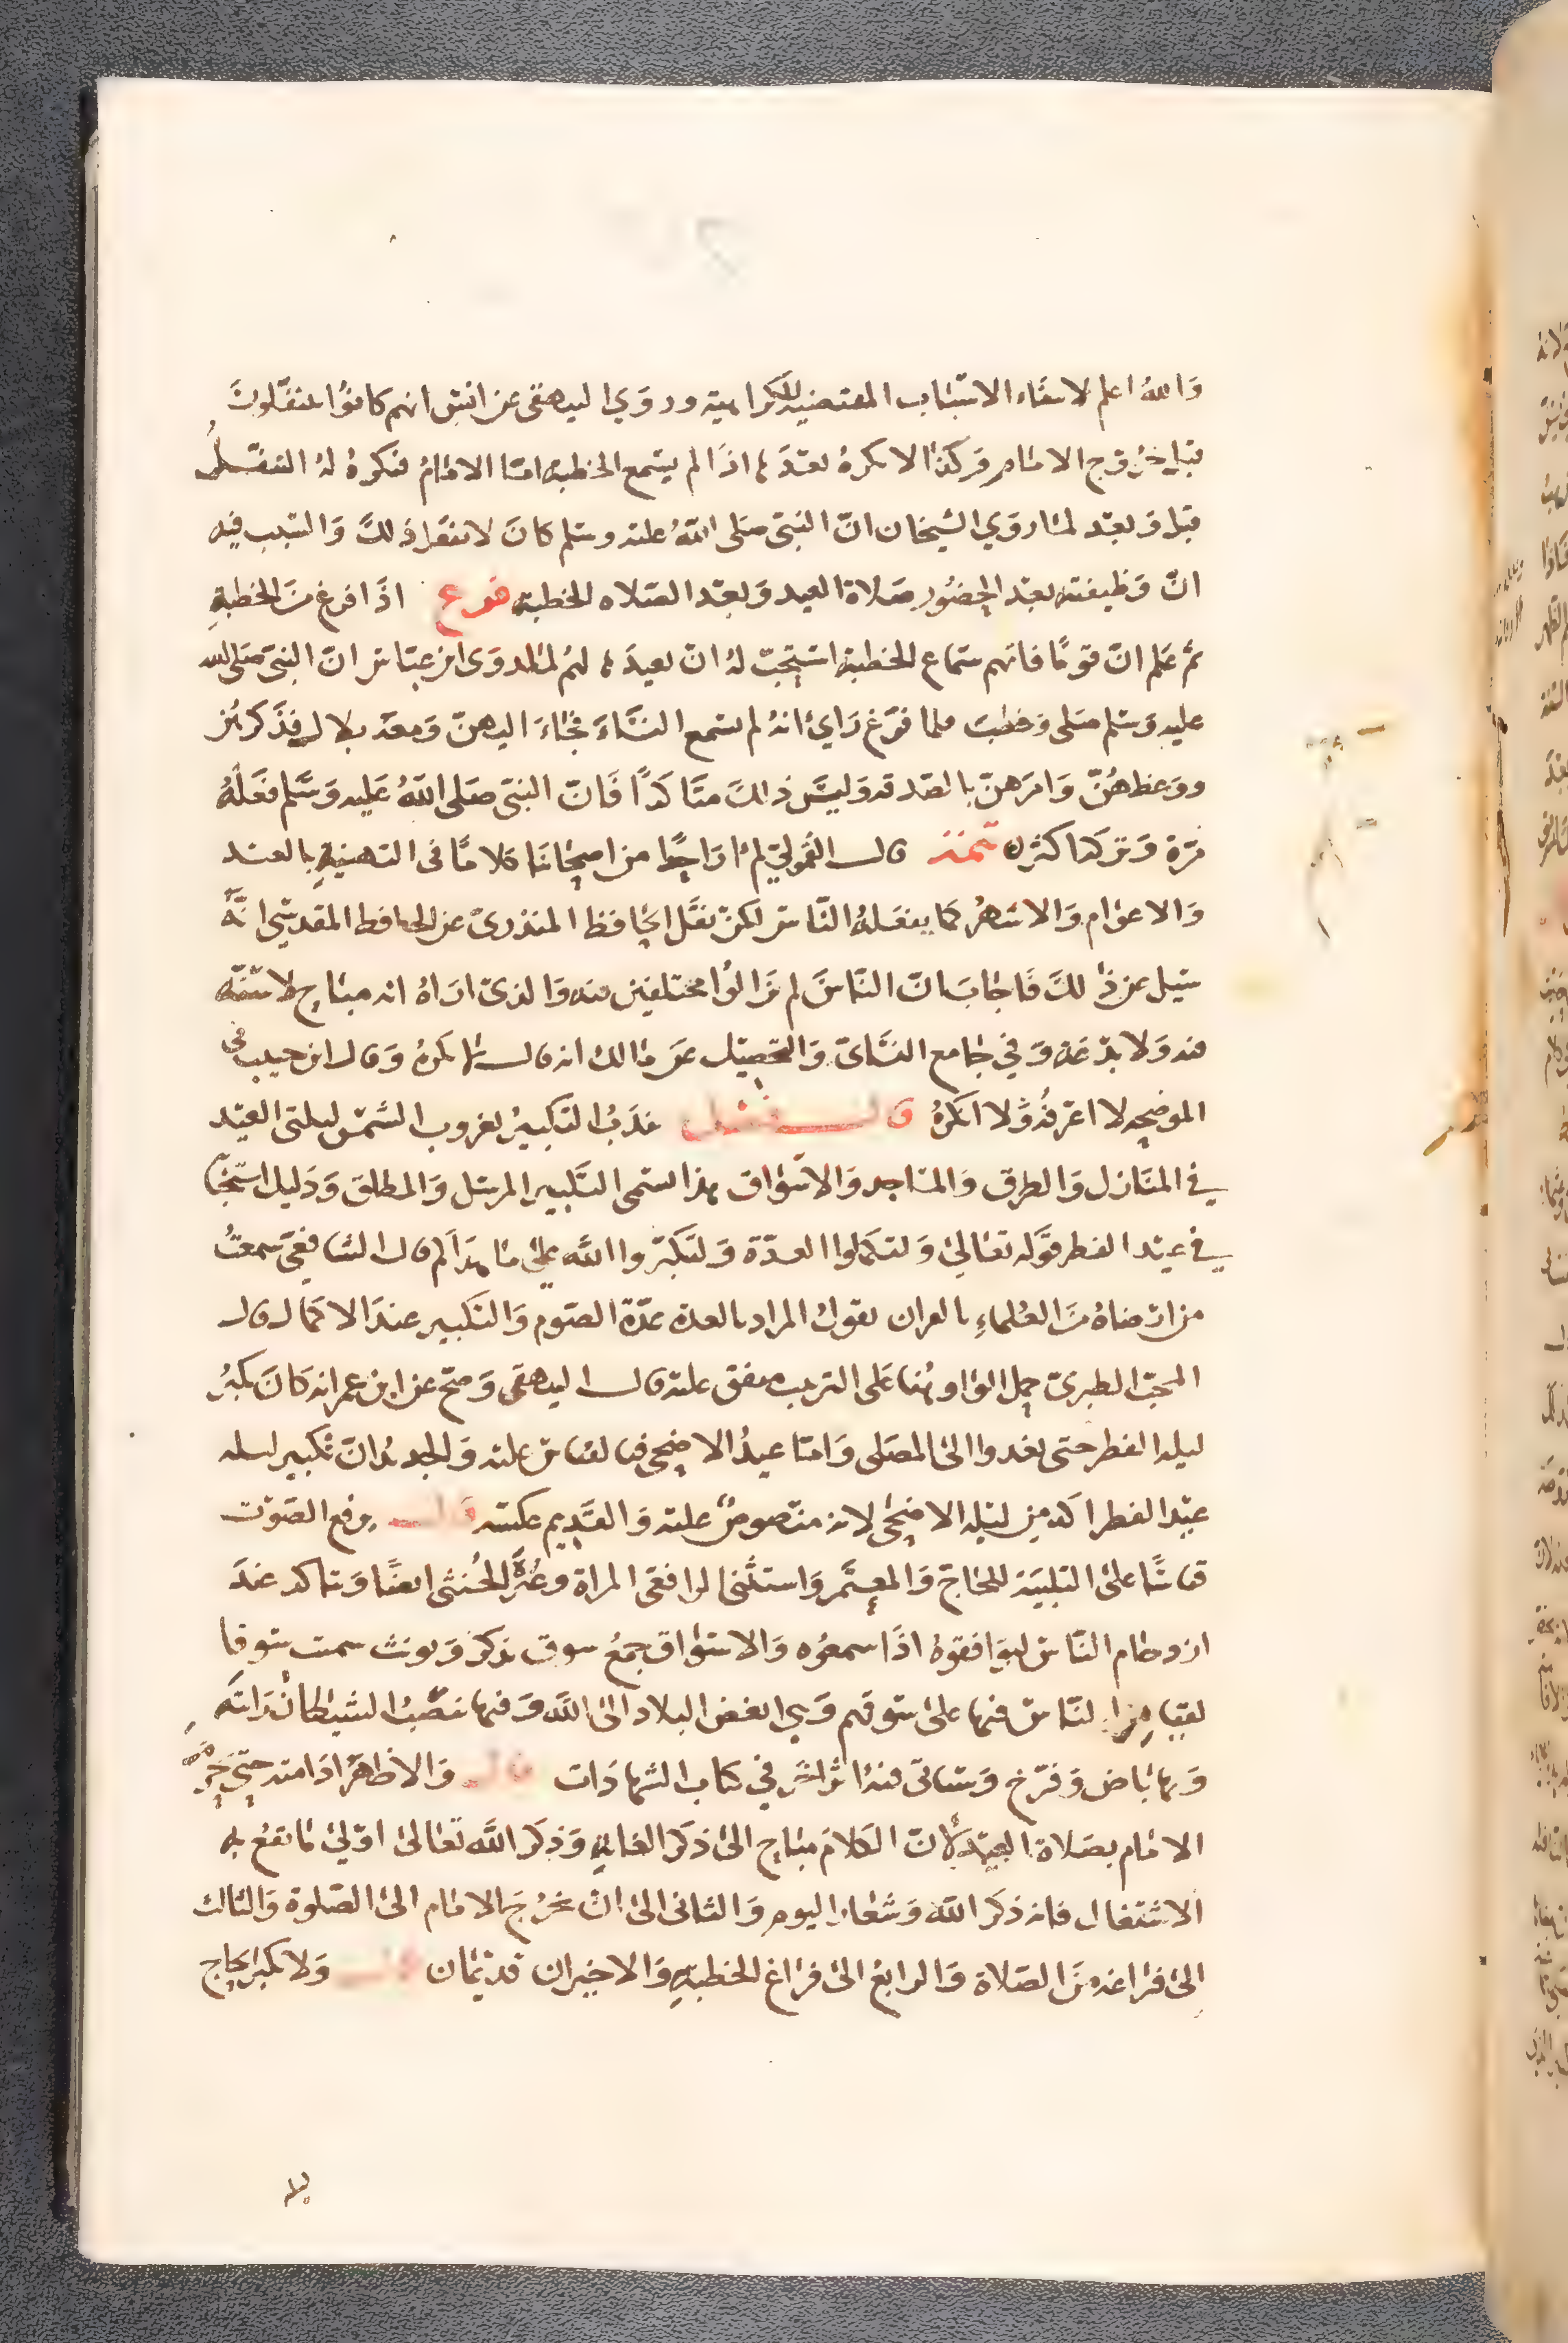 والله اعلم لانتفاء الاسباب المقتضية للكراهية وروي البيهقي عن انس انهم كانوا يتنفلون
قبل خروج الامام وكذا لا يكره بعدها اذا لم يسمع الخطبة اما الامام فيكره له التنفل
قبل وبعد لما روي الشيخان ان النبي صلى الله عليه وسلم كان لا يفعل ذلك والسبب فيه
ان وظيفته بعد الحضور صلاة العيد وبعد الصلاه الخطبة فرع اذا فرغ من الخطبة
ثم علم ان قوما فاتهم سماع الخطبة استحب له ان يعيدها لهم لما روى ابن عباس ان النبي صلى الله
عليه وسلم صلى وخطب فلما فرغ راي انه لم يسمع النساء فجاء اليهن ومعه بلال فذكرهن
ووعظهن وامرهن بالصدقة وليس ذلك متاكدا فان النبي صلى الله عليه وسلم فعله
مرة وتركها كثيرا تتمة قال القمولي لم ار احدا من اصحابنا كلاما في التهنية بالعيد
والاعوام والاشهر كما يفعله الناس لكن نقل الحافظ المنذري عن الحافظ المقدسي انه
سيل عن ذلك فاجاب ان الناس لم يزالوا مختلفين فيه والذي اراه انه مباح لا سنة
فيه ولا بدعة وفي جامع البيان والتحصيل عن مالك انه قال لا يكره وقال ابن حبيب في
الموضحه لا اعرفه ولا اكره قال فصل يندب التكبير بغروب الشمس ليلتي العيد
في المنازل والطرق والمساجد والاسواق هذا يسمى التكبير المرسل والمطلق ودليل استحبا
في عيد الفطر قوله تعالى ولتكملوا العدة ولتكبروا الله على ما هداكم قال الشافعي سمعت
من ارضاه من العلماء بالقران يقول المراد بالعدة عدة الصوم والتكبير عند الاكمال قال
المحب الطبري حمل الواو هنا على الترتيب متفق عليه قال البيهقي وصح عن ابن عمر انه كان يكبر
ليلة الفطر حتى يغدوا الى المصلى واما عيد الاضحى فبالقياس عليه والجديد ان تكبير ليلة
عيد الفطر اكد من ليلة الاضحى لانه منصوص عليه والقديم عكسه قال برفع الصوت
قياسا على التلبية للحاج والمعتمر واستثنى الرافعي المراة وغيره الخنثى ايضا ويتاكد عند
ازدحام الناس ليوافقوه اذا سمعوه والاسواق جمع سوق يذكر ويونث سميت سوقا
لقيام الناس فيها على سوقهم وهي ابغض البلاد الى الله وفيها ينصب الشيطان رايته
وبها باض وفرخ وسياتي فيه اثر اخر في كتاب الشهادات قال والاظهر ادامته حتى يحرم
الامام بصلاة العيد لان الكلام مباح الى ذكر الغاية وذكر الله تعالى اولى ما يقع به
الاشتغال فانه ذكر الله وشعار اليوم والثاني الى ان يخرج الامام الى الصلوة والثالث
الى فراغه من الصلاة والرابع الى فراغ الخطبة والاخيران قديمان قال ولا يكبر الحاج